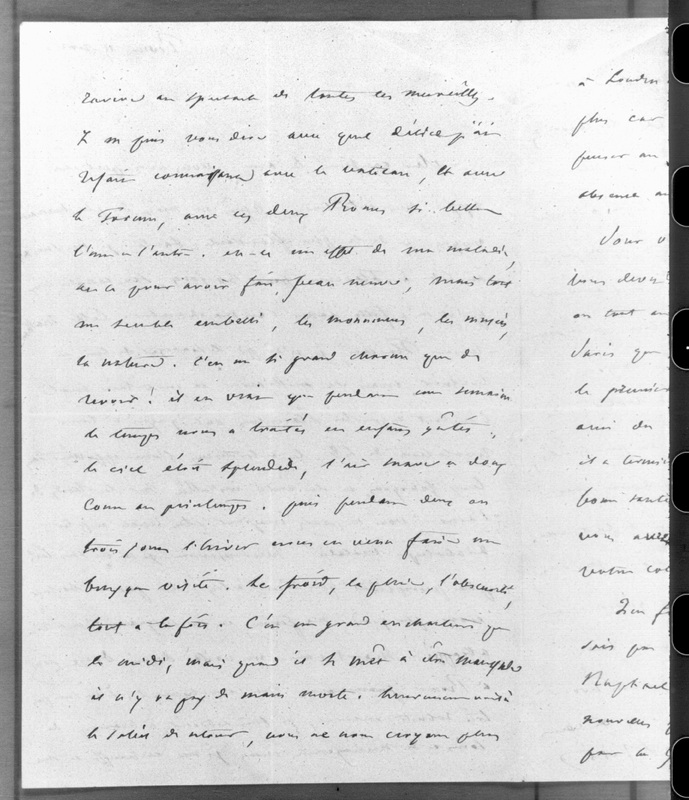 ravivé au spectacle de toutes ces merveilles.
Je ne puis vous dire avec quel délice j'ai
refait connaissance avec le vatican, et avec
le Forum, avec ces deux Romes si belles
l'une et l'autre. est-ce un effet de ma maladie,
est-ce pour avoir fait peau neuve, mais tout
me semble embelli, les monuments, les musées,
la nature. C'est un si grand charme que de
revoir ! il est vrai que pendant une semaine
le temps nous a traités en enfants gâtés.
le ciel était splendide, l'air suave et doux
comme au printemps. puis pendant deux ou
trois jours l'hiver nous est venu faire une
brusque visite. Le froid, la pluie, l'obscurité,
tout à la fois. C'est un grand enchanteur que
le midi, mais quand il se met à être maussade
il n'y va pas de main morte. heureusement voilà
le soleil de retour, nous ne nous croyons plus
à Londres
plus car
penser au
absence
Vous
vous devez
on tout
Paris que
le premier
ami du
il a termi
bonne santé
vous avez
votre
J'en
sais pas
Raphael
nouveau
par la